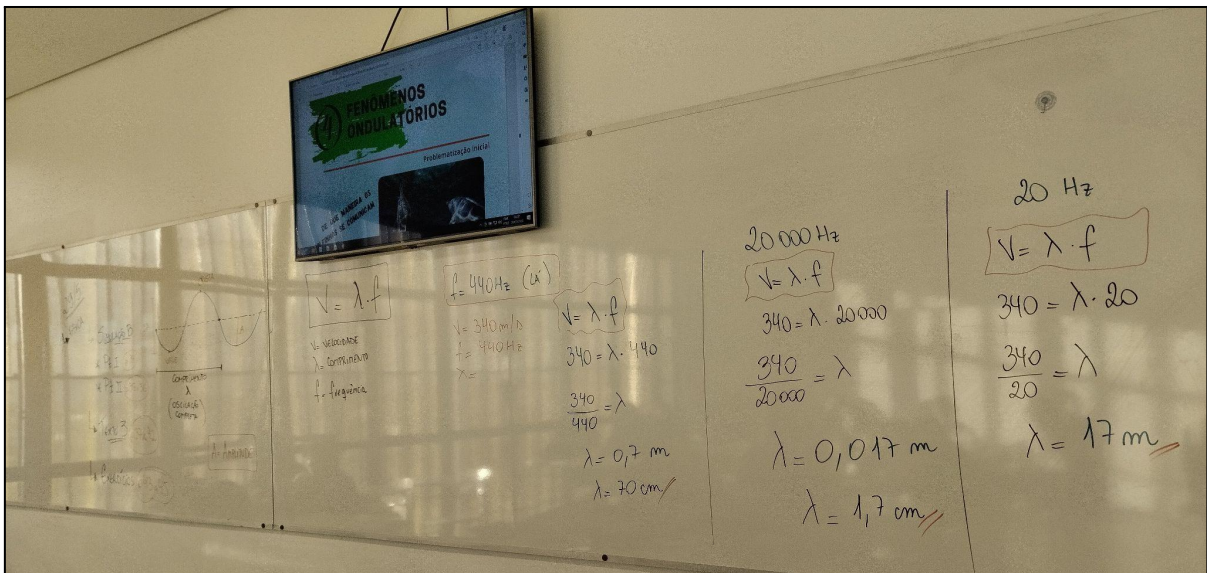 FENÔMENOS
ONDULATÓRIOS
Problematização Inicial
DE QUE MANEIRA OS
SE COMUNICAM
COMPRIMENTO
λ
(OSCILAÇÃO
COMPLETA
A = AMPLITUDE
V = λ.f
V = VELOCIDADE
λ = COMPRIMENTO
f = frequência
f = 440Hz (LÁ)
V = 340 m/s
f = 440Hz
λ =
V = λ.f
340 = λ.440
340
440
= λ
λ = 0,7 m
λ = 70 cm
20 000 Hz
V = λ.f
340 = λ.20000
340
20000
= λ
λ = 0,017 m
λ = 1,7 cm
20 Hz
V = λ.f
340 = λ.20
340
20
= λ
λ = 17 m